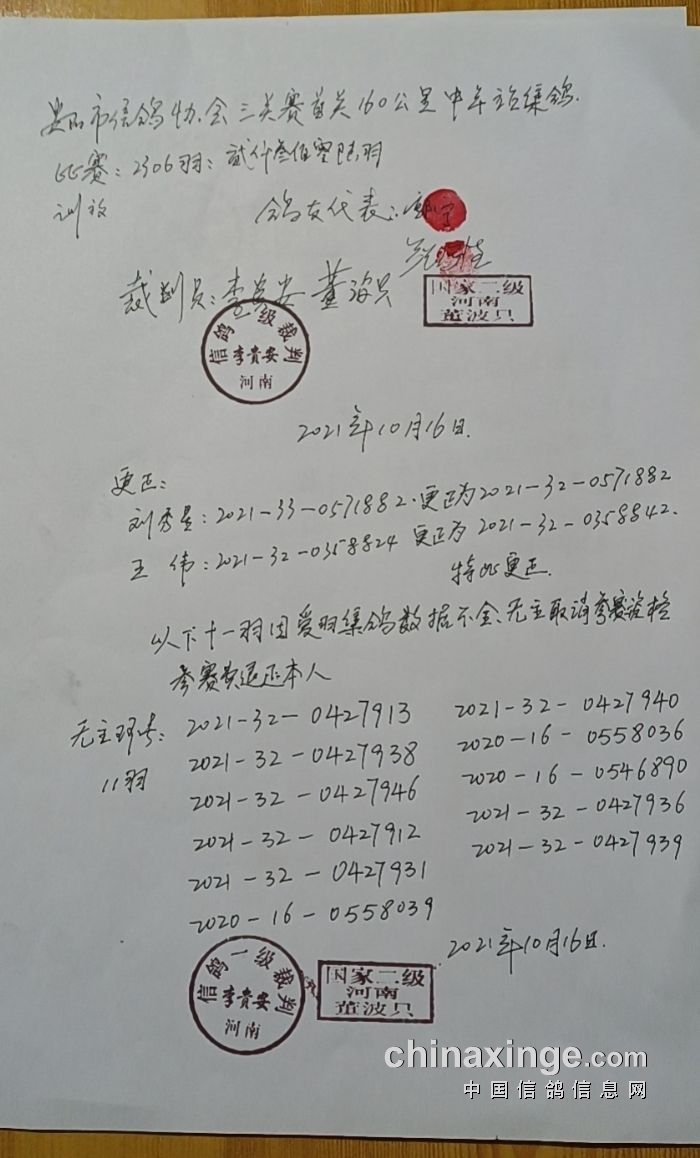 市信鸽协会三类赛首关160公里中牟站集鸽.
比赛：2306羽：贰仟叁佰零陆羽
训放
鸽友代表：
裁判员：李贵安 董波只
国家二级
河南
董波只
信鸽一级裁判
李贵安
河南
2021年10月16日.
更正：
刘秀：2021-33-0571882.更正为2021-32-0571882
王 伟：2021-32-0358824 更正为 2021-32-0358842.
特此更正.
以下十一羽因爱羽集鸽数据不全、无主取消参赛资格
参赛费退还本人
无主环号：
11羽
2021-32-0427913
2021-32-0427938
2021-32-0427946
2021-32-0427912
2021-32-0427931
2020-16-0558039
2021-32-0427940
2020-16-0558036
2020-16-0546890
2021-32-0427936
2021-32-0427939
2021年10月16日.
信鸽一级裁判
李贵安
河南
国家二级
河南
董波只
chinaxinge.com
中国信鸽信息网